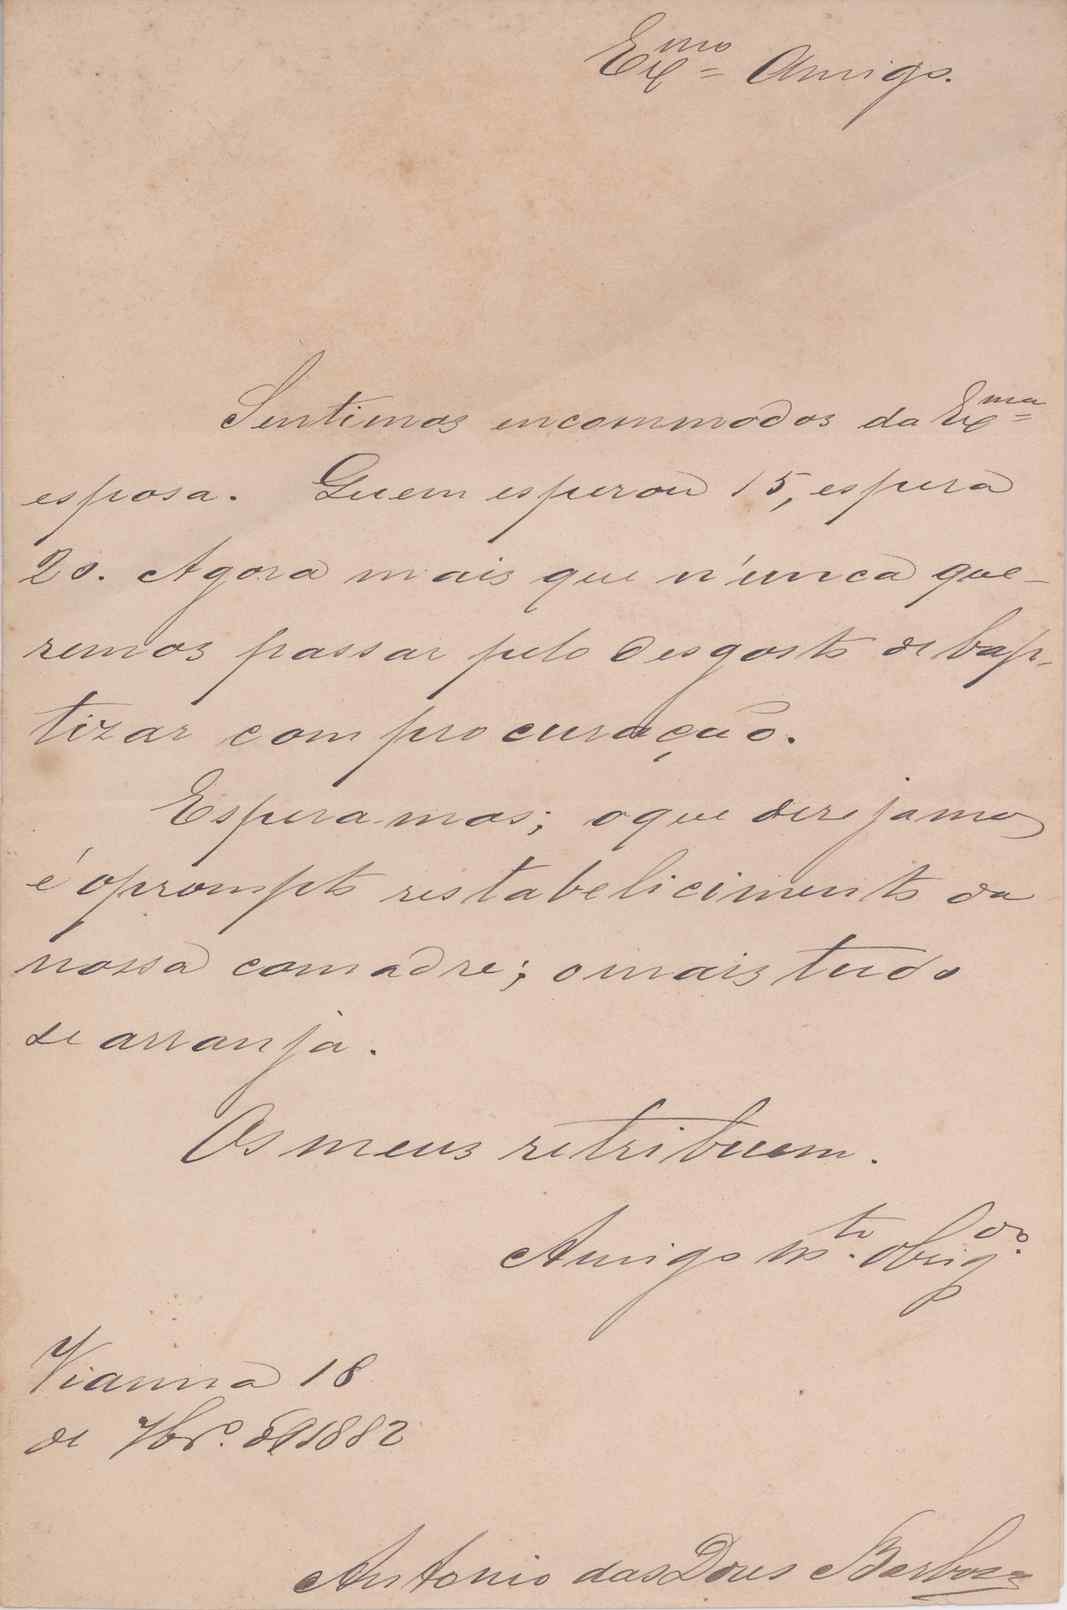 Exmo Amigo.
Sentimos encommodos da Exma
esposa. Quem esperou 15, espera
20. Agora mais que n'unca que-
remos passar pelo desgosto de bap-
tizar com procuração.
Esperamos; o que desejamos
é o prompto restabelicimento da
nossa comadre; o mais tudo
se arranja.
Os meus retribuem.
Amigo mto. obrigdo.
Vianna 18
de 7bro. de 1882
Antonio das Dores Barboza